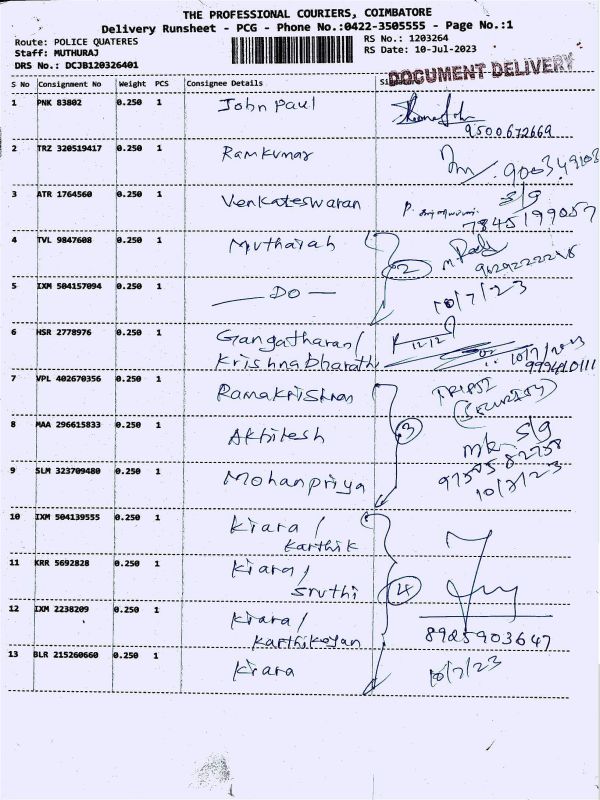 THE PROFESSIONAL COURIERS, COIMBATORE
Delivery Runsheet - PCG - Phone No.:0422-3505555 - Page No.:1
Route: POLICE QUATERES
RS No.: 1203264
Staff: MUTHURAJ
RS Date: 10-Jul-2023
DRS No.: DCJB120326401
DOCUMENT DELIVERY
S No Consignment No Weight PCS Consignee Details
1 PNK 83802 0.250 1 John Paul
9500672669
2 TRZ 320519417 0.250 1 Ramkumar
3 ATR 1764560 0.250 1 Venkateswaran S/g
7845199057
4 TVL 9847608 0.250 1 Muthaiah 2
5 IXM 504157094 0.250 1 — DO — 10/7/23
6 HSR 2778976 0.250 1 Gangatharan/
Krishnabharathi
7 VPL 402670356 0.250 1 Ramakrishnan
(SECURITY)
8 MAA 296615833 0.250 1 Akhilesh 3 S/g
9 SLM 323709480 0.250 1 Mohanpriya 10/7/23
10 IXM 504139555 0.250 1 Kiara /
Karthik
11 KRR 5692828 0.250 1 Kiara /
Sruthi 4
12 IXM 2238209 0.250 1 Kiara /
Karthikeyan 8925903647
13 BLR 215260660 0.250 1 Kiara 10/7/23